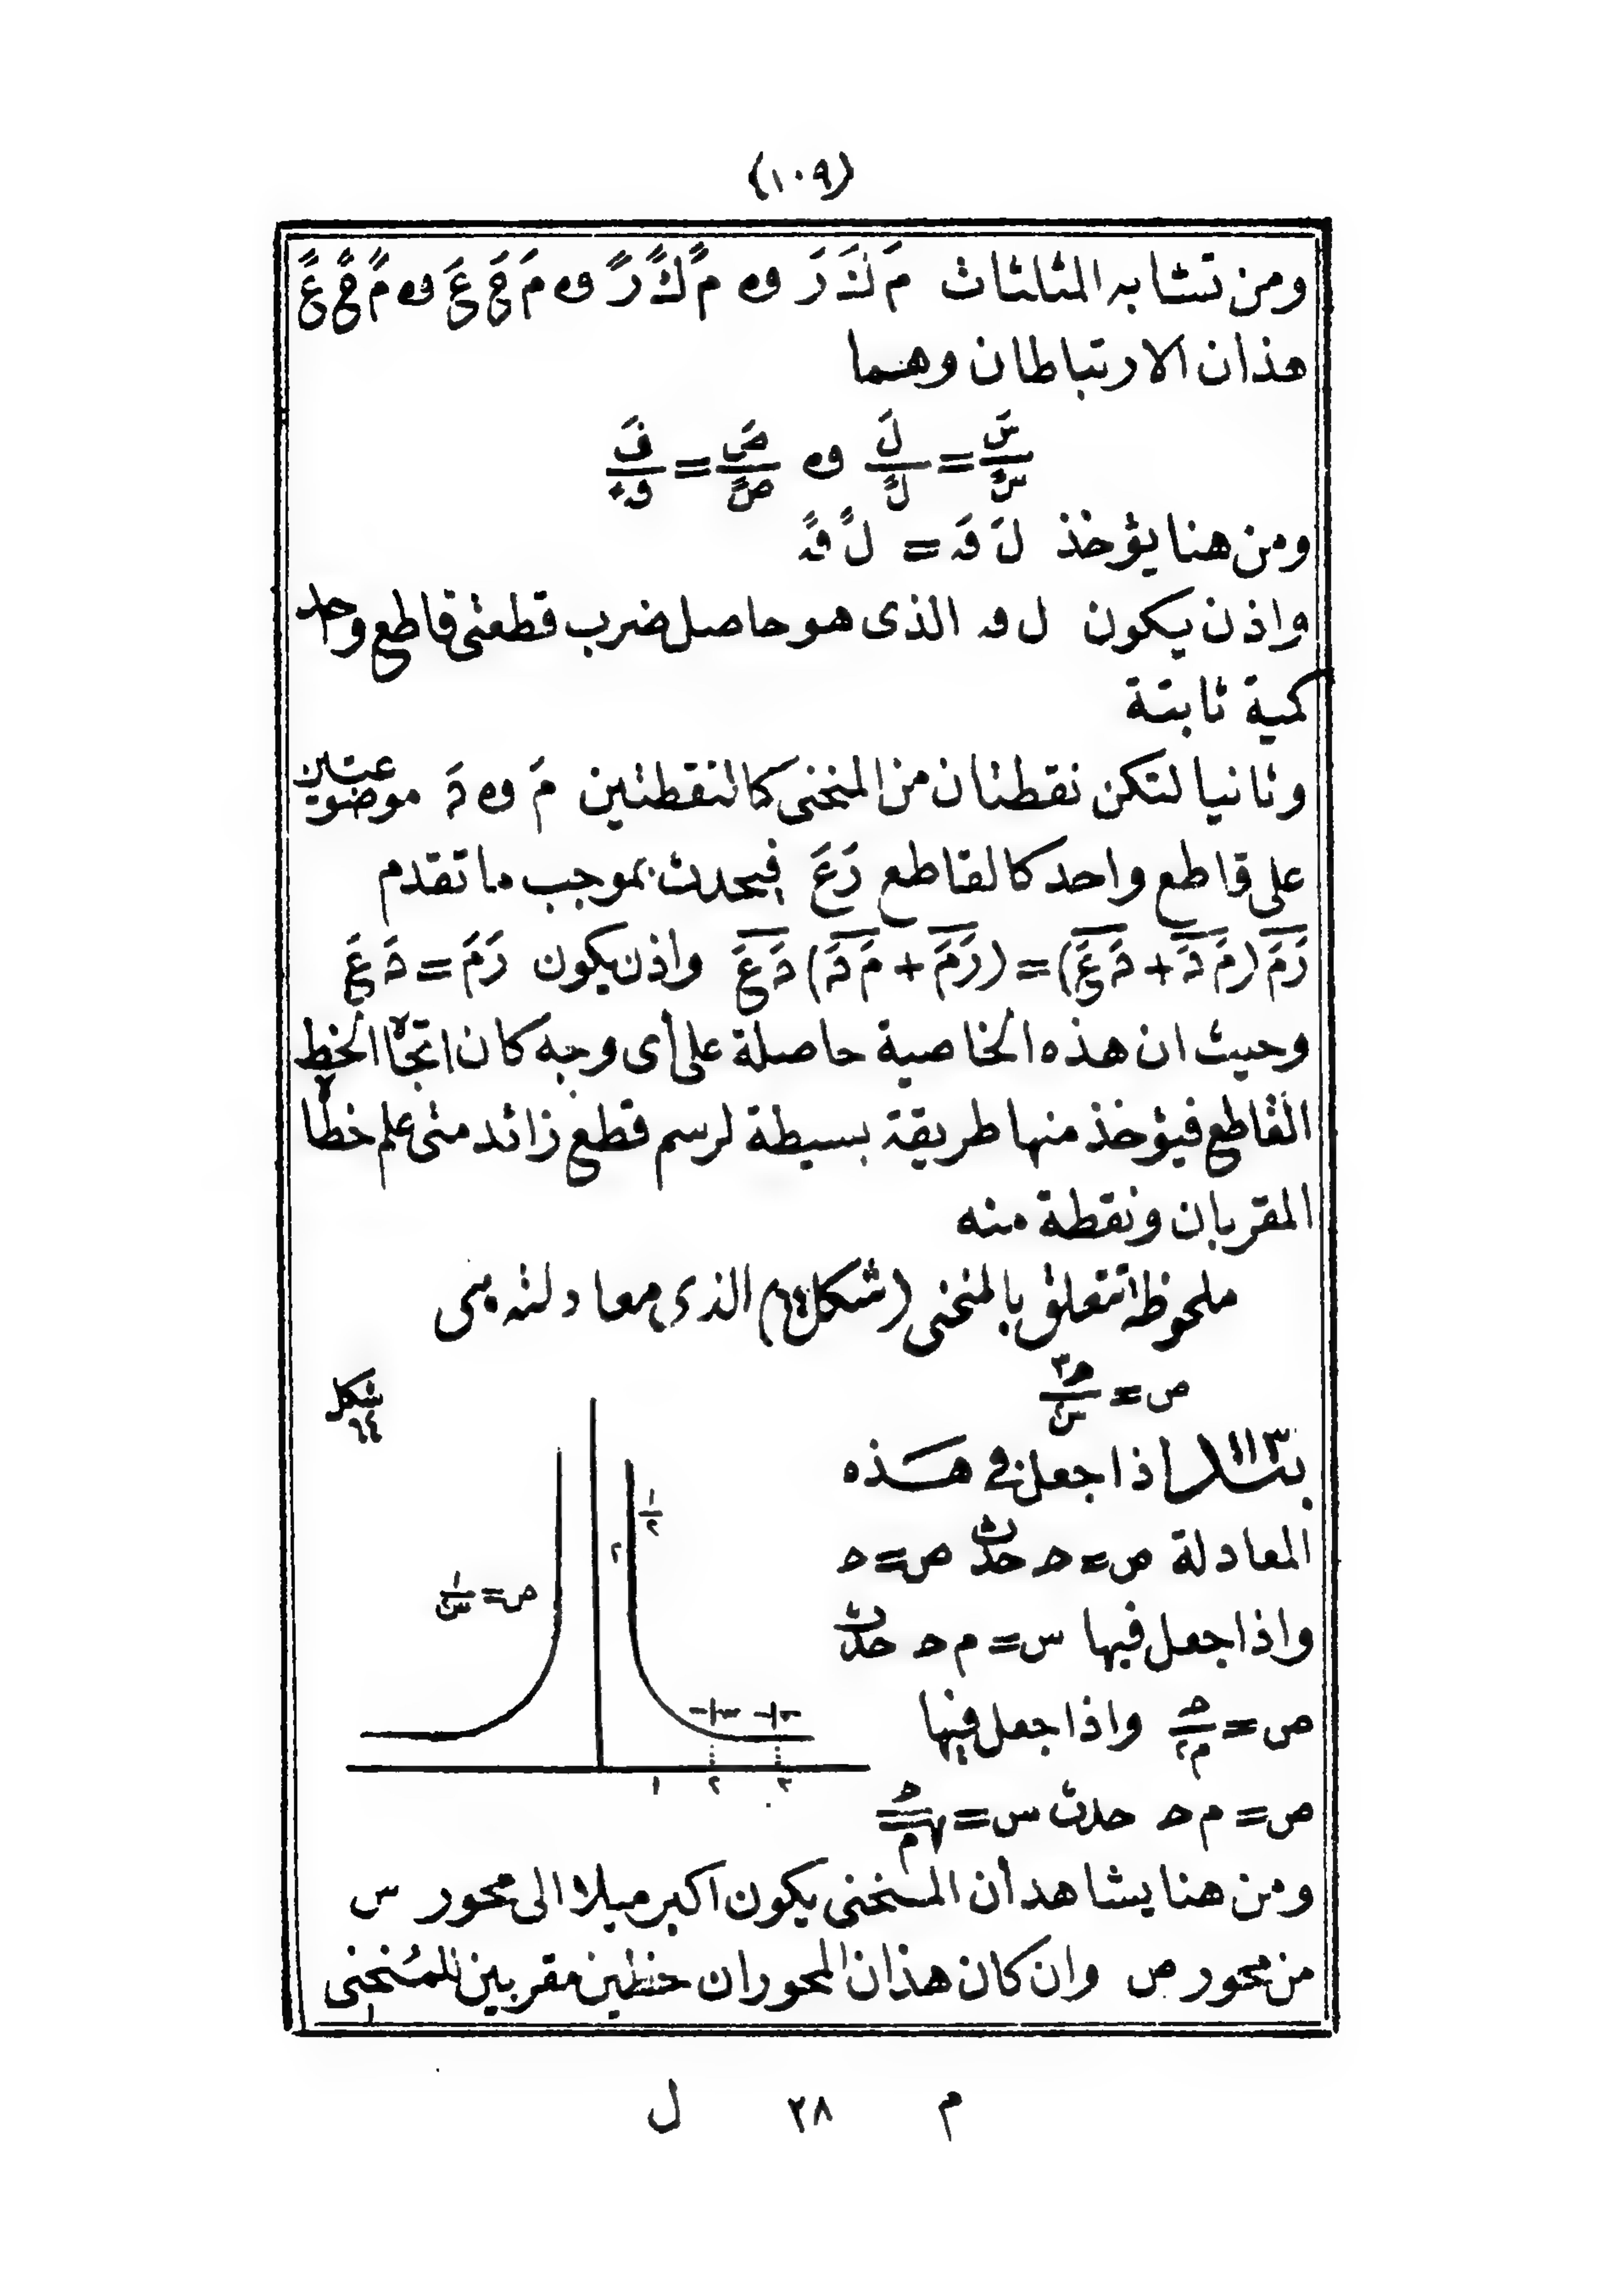 (١٠٩)
ومن تشابه المثلثات مَ كَ رَ و مً كً رً و مَ حَ عَ و مً حً عً
هذان الارتباطان وهما
سَ/سً = لَ/لً و صَ/صً = قَ/قً
ومن هنا يؤخذ لَ قَ = لً قً
واذن يكون ل ق الذى هو حاصل ضرب قطعتى قاطع واحد
كمية ثابتة
وثانيا لتكن نقطتان من المنحنى كالنقطتين مَ و دَ موضوعتين
على قاطع واحد كالقاطع رَعَ فيحدث بموجب ما تقدم
رَمَ (مَ دَ + دَ عَ) = (رَمَ + مَ دَ) دَ عَ واذن يكون رَمَ = دَ عَ
وحيث ان هذه الخاصية حاصلة على أى وجه كان اتجاه الخط
القاطع فيؤخذ منها طريقة بسيطة لرسم قطع زائد متى علم خطاه
المقربان ونقطة منه
ملحوظة تتعلق بالمنحنى (شكل ٦٤) الذى معادلته هى
ص = حـ٣/س٢
شكل ٦٤
بند ١١٣ اذا جعل فى هذه
المعادلة س = حـ حدث ص = حـ
واذا جعل فيها س = م حـ حدث
ص = حـ/م٢ واذا جعل فيها
ص = م حـ حدث س = حـ/√م
ص = ١/س٢
١/٢
٢
١ ٢ ٣
ومن هنا يشاهد أن المنحنى يكون اكبر ميلا الى محور س
من محور ص وان كان هذان المحوران خطين مقربين للمنحنى
م ٢٨ ل